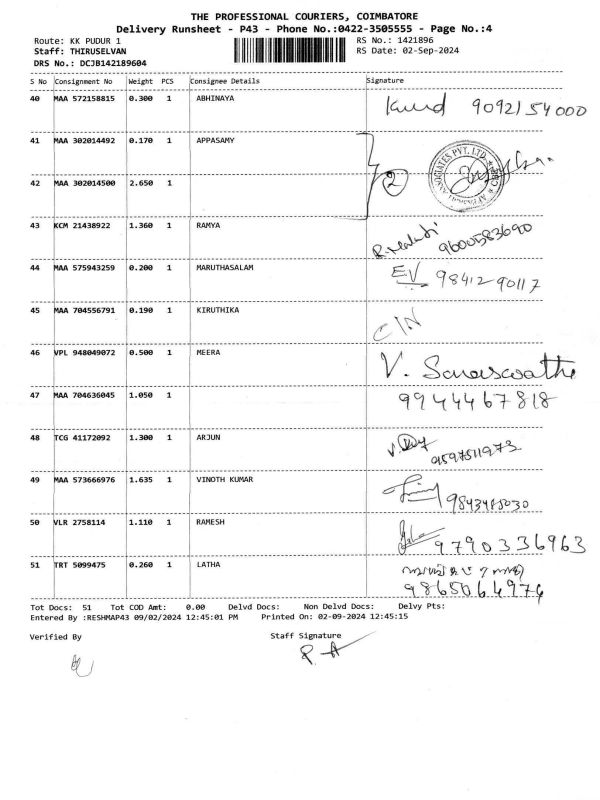 THE PROFESSIONAL COURIERS, COIMBATORE
Delivery Runsheet - P43 - Phone No.:0422-3505555 - Page No.:4
Route: KK PUDUR 1 RS No.: 1421896
Staff: THIRUSELVAN RS Date: 02-Sep-2024
DRS No.: DCJB142189604
S No Consignment No Weight PCS Consignee Details Signature
40 MAA 572158815 0.300 1 ABHINAYA 9092154000
41 MAA 302014492 0.170 1 APPASAMY
2 ASSOCIATES PVT. LTD.
42 MAA 302014500 2.650 1
43 KCM 21438922 1.360 1 RAMYA 9600583690
44 MAA 575943259 0.200 1 MARUTHASALAM EV 98412 90117
45 MAA 704556791 0.190 1 KIRUTHIKA C/N
46 VPL 948049072 0.500 1 MEERA V. Saraswathi
47 MAA 704636045 1.050 1 9944467818
48 TCG 41172092 1.300 1 ARJUN
9597511973
49 MAA 573666976 1.635 1 VINOTH KUMAR
9843415030
50 VLR 2758114 1.110 1 RAMESH 9790336963
51 TRT 5099475 0.260 1 LATHA
9865064974
Tot Docs: 51 Tot COD Amt: 0.00 Delvd Docs: Non Delvd Docs: Delvy Pts:
Entered By :RESHMAP43 09/02/2024 12:45:01 PM Printed On: 02-09-2024 12:45:15
Verified By Staff Signature